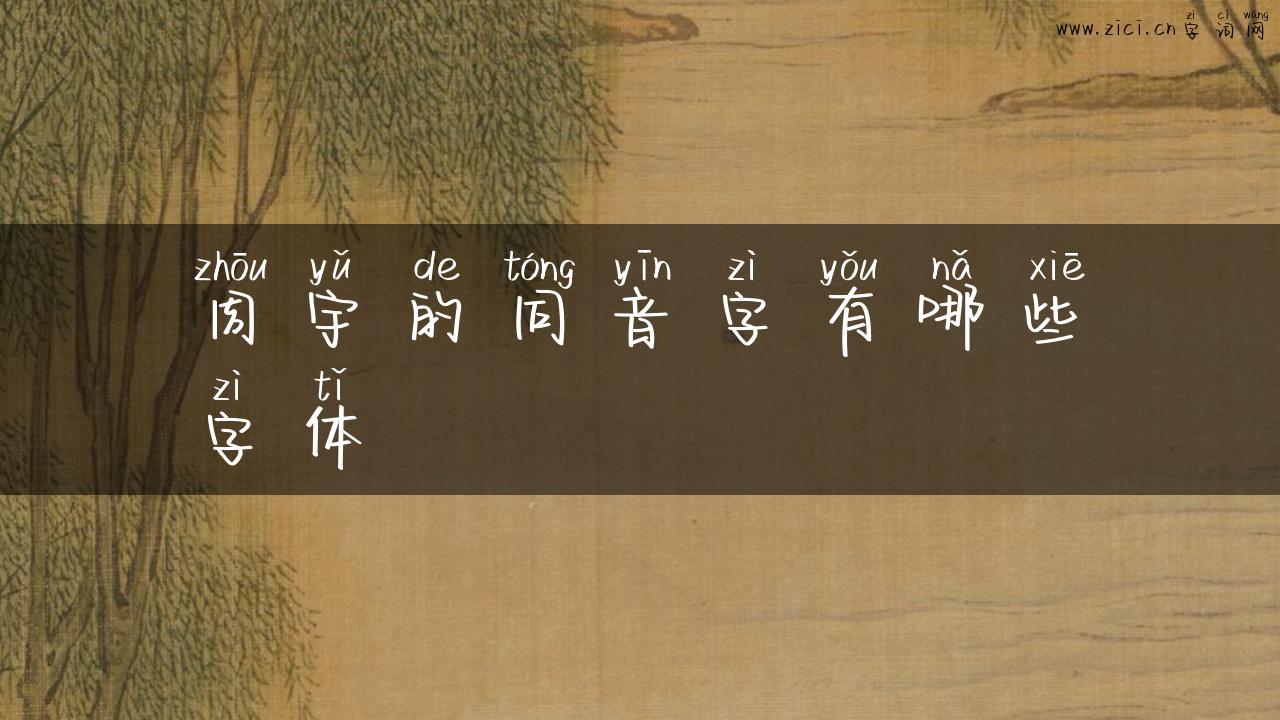 zì cí wǎng
www.zici.cn字词网
zhōu yǔ de tóng yīn zì yǒu nǎ xiē
周宇的同音字有哪些
zì tǐ
字体